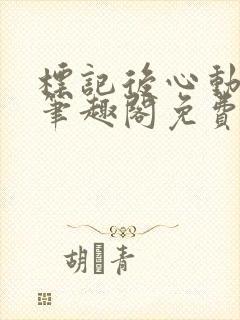 標記後心動
筆趣閣免費
胡 青